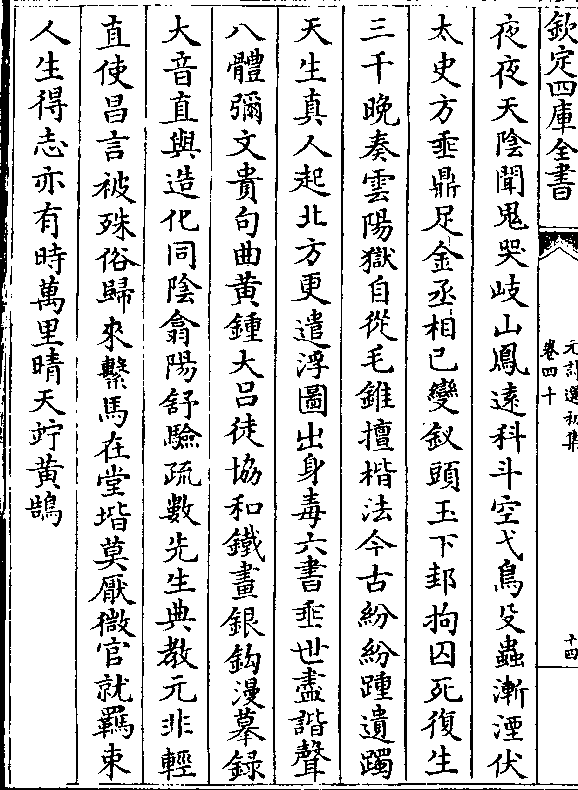 欽定四庫全書
元詩選初集
卷四十
十四
夜夜天陰聞鬼哭岐山鳳遠科斗空弋鳥殳蟲漸湮伏
太史方垂鼎足金丞相已變釵頭玉下邽拘囚死復生
三千晚奏雲陽獄自從毛錐擅楷法今古紛紛踵遺躅
天生真人起北方更遣浮圖出身毒六書垂世盡諧聲
八體彌文貴句曲黃鍾大呂徒協和鐵畫銀鈎漫摹録
大音直與造化同陰翕陽舒驗疏數先生典教元非輕
直使昌言被殊俗歸來繫馬在堂堦莫厭微官就羈束
人生得志亦有時萬里晴天竚黃鵠